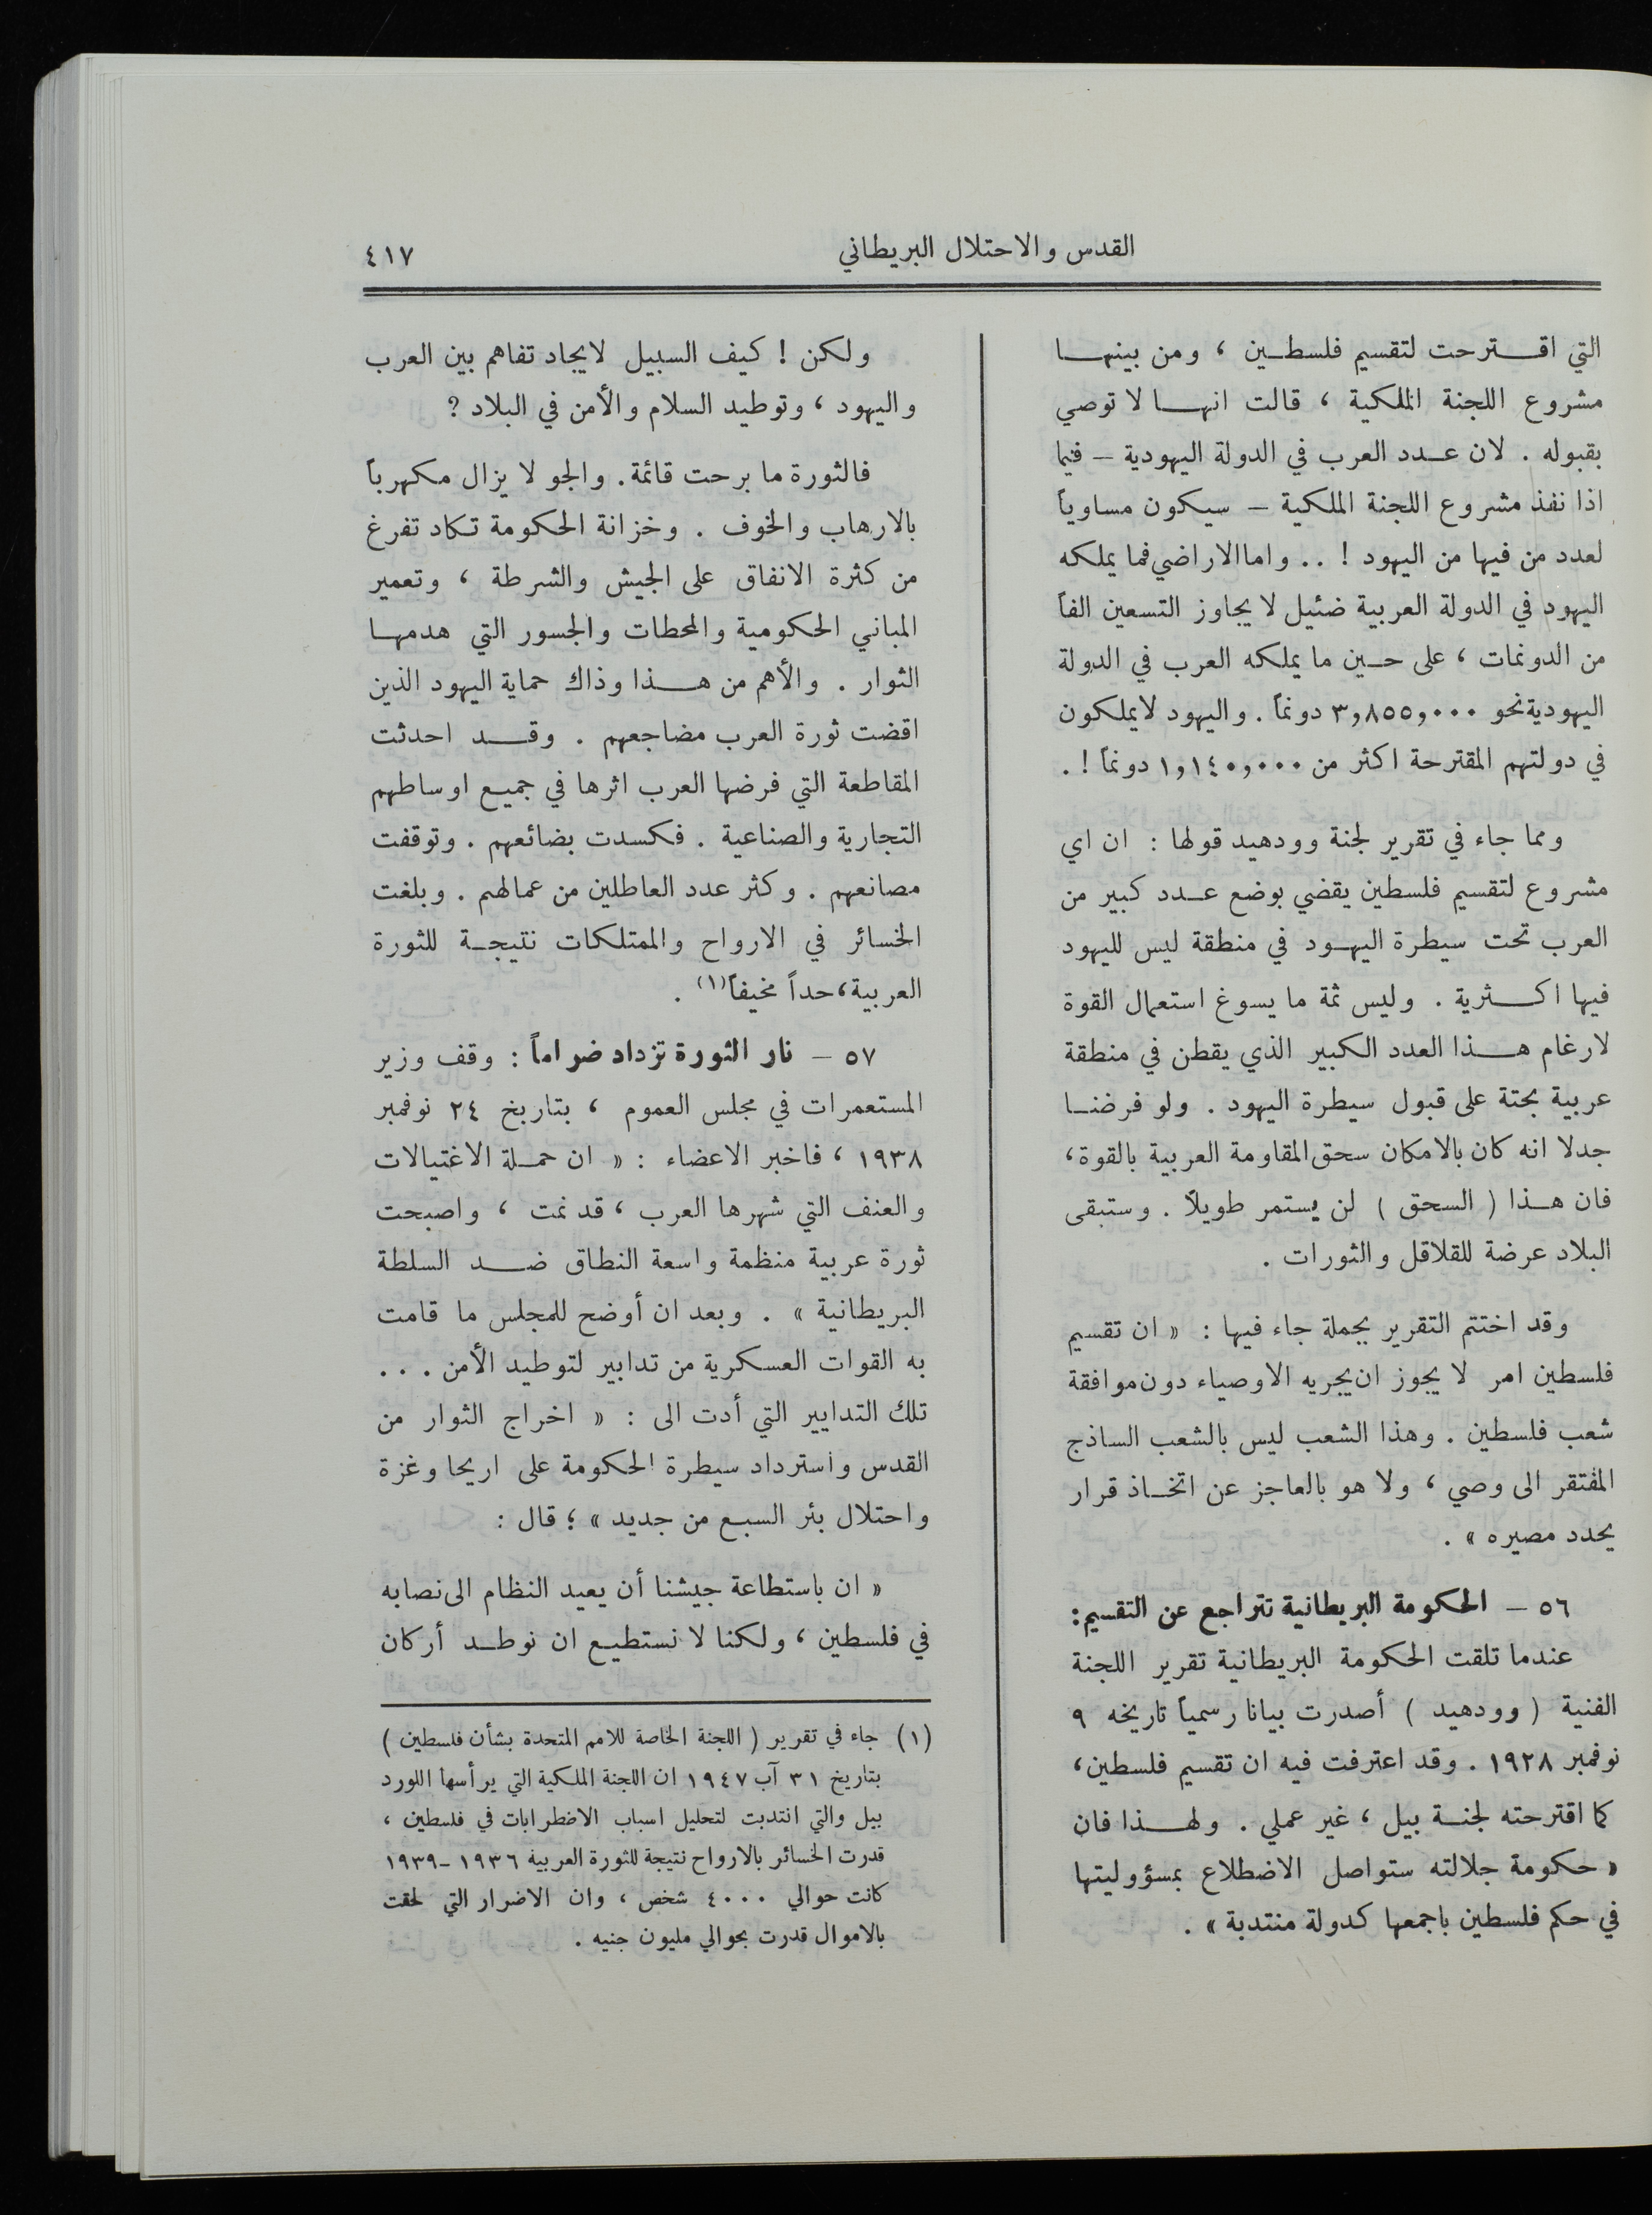 القدس والاحتلال البريطاني
٤١٧
التي اقترحت لتقسيم فلسطين ، ومن بينها
مشروع اللجنة الملكية ، قالت انها لا توصي
بقبوله . لان عدد العرب في الدولة اليهودية – فيما
اذا نفذ مشروع اللجنة الملكية – سيكون مساوياً
لعدد من فيها من اليهود ! .. واما الاراضي فما يملكه
اليهود في الدولة العربية ضئيل لا يجاوز التسعين الفاً
من الدونمات ، على حين ما يملكه العرب في الدولة
اليهودية نحو ٣,٨٥٥,٠٠٠ دونماً . واليهود لا يملكون
في دولتهم المقترحة اكثر من ١,١٤٠,٠٠٠ دونماً ! .
ومما جاء في تقرير لجنة وودهيد قولها : ان اي
مشروع لتقسيم فلسطين يقضي بوضع عدد كبير من
العرب تحت سيطرة اليهود في منطقة ليس لليهود
فيها اكثرية . وليس ثمة ما يسوغ استعمال القوة
لارغام هذا العدد الكبير الذي يقطن في منطقة
عربية بحتة على قبول سيطرة اليهود . ولو فرضنا
جدلا انه كان بالامكان سحق المقاومة العربية بالقوة ،
فان هذا ( السحق ) لن يستمر طويلاً . وستبقى
البلاد عرضة للقلاقل والثورات .
وقد اختتم التقرير بجملة جاء فيها : « ان تقسيم
فلسطين امر لا يجوز ان يجريه الاوصياء دون موافقة
شعب فلسطين . وهذا الشعب ليس بالشعب الساذج
المفتقر الى وصي ، ولا هو بالعاجز عن اتخاذ قرار
يحدد مصيره » .
٥٦ – الحكومة البريطانية تتراجع عن التقسيم :
عندما تلقت الحكومة البريطانية تقرير اللجنة
الفنية ( وودهيد ) أصدرت بيانا رسمياً تاريخه ٩
نوفمبر ١٩٢٨ . وقد اعترفت فيه ان تقسيم فلسطين ،
كما اقترحته لجنة بيل ، غير عملي . ولهذا فان
« حكومة جلالته ستواصل الاضطلاع بمسؤوليتها
في حكم فلسطين باجمعها كدولة منتدبة » .
ولكن ! كيف السبيل لايجاد تفاهم بين العرب
واليهود ، وتوطيد السلام والأمن في البلاد ?
فالثورة ما برحت قائمة . والجو لا يزال مكهرباً
بالارهاب والخوف . وخزانة الحكومة تكاد تفرغ
من كثرة الانفاق على الجيش والشرطة ، وتعمير
المباني الحكومية والمحطات والجسور التي هدمها
الثوار . والأهم من هذا وذاك حماية اليهود الذين
اقضت ثورة العرب مضاجعهم . وقد احدثت
المقاطعة التي فرضها العرب اثرها في جميع اوساطهم
التجارية والصناعية . فكسدت بضائعهم . وتوقفت
مصانعهم . وكثر عدد العاطلين من عمالهم . وبلغت
الخسائر في الارواح والممتلكات نتيجة للثورة
العربية ، حداً مخيفاً (١) .
٥٧ – نار الثورة تزداد ضراماً : وقف وزير
المستعمرات في مجلس العموم ، بتاريخ ٢٤ نوفمبر
١٩٣٨ ، فاخبر الاعضاء : « ان حملة الاغتيالات
والعنف التي شهرها العرب ، قد نمت ، واصبحت
ثورة عربية منظمة واسعة النطاق ضد السلطة
البريطانية » . وبعد ان أوضح للمجلس ما قامت
به القوات العسكرية من تدابير لتوطيد الأمن . . .
تلك التدابير التي أدت الى : « اخراج الثوار من
القدس واسترداد سيطرة الحكومة على اريحا وغزة
واحتلال بئر السبع من جديد » ؛ قال :
« ان باستطاعة جيشنا أن يعيد النظام الى نصابه
في فلسطين ، ولكنا لا نستطيع ان نوطد أركان
(١) جاء في تقرير ( اللجنة الخاصة للامم المتحدة بشأن فلسطين )
بتاريخ ٣١ آب ١٩٤٧ ان اللجنة الملكية التي يرأسها اللورد
بيل والتي انتدبت لتحليل اسباب الاضطرابات في فلسطين ،
قدرت الخسائر بالارواح نتيجة للثورة العربية ١٩٣٦ - ١٩٣٩
كانت حوالي ٤٠٠٠ شخص ، وان الاضرار التي لحقت
بالاموال قدرت بحوالي مليون جنيه .